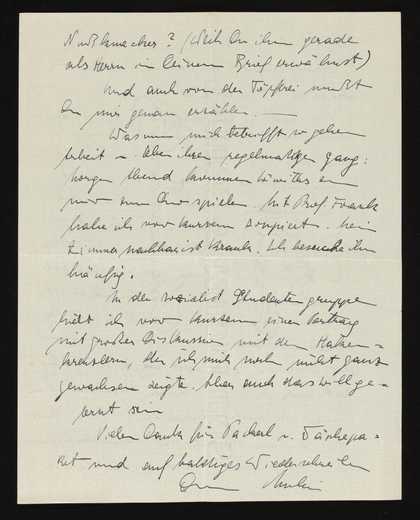 Nußknacker? (Weil Du ihn gerade
als Herrn in Deinem Brief erwähnst)
Und auch von der Töpferei mußt
Du mir genau erzählen. —
Was nun mich betrifft so gehen
Arbeit u. Leben ihren regelmäßigen Gang:
morgen Abend kommen
zum spielen. Mit Prof. Frank
habe ich vor kurzem soupiert. Mein
Zimmernachbar ist krank. Ich besuche ihn
häufig.
In der sozialist. Studentengruppe
hielt ich vor kurzem einen Vortrag
mit großer Diskussion mit den Haken-
kreuzlern, der ich mich noch nicht ganz
gewachsen zeigte. Aber auch das will ge-
lernt sein
Vielen Dank für Packerl u. Wäschepa-
ket und auf baldiges Wiederschreiben
Dein